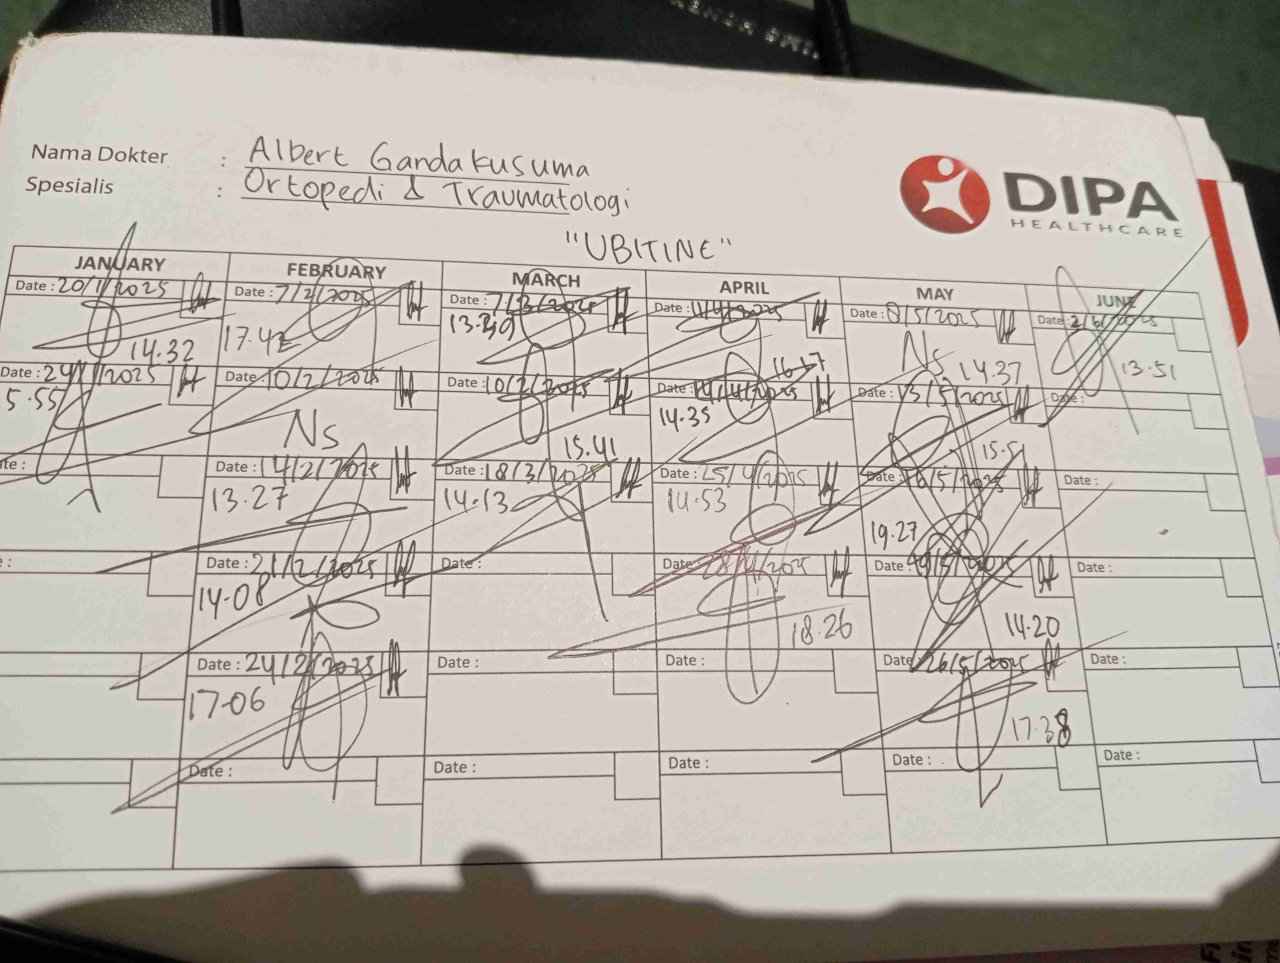 Nama Dokter : Albert Gandakusuma
Spesialis : Ortopedi & Traumatologi
DIPA
HEALTHCARE
"UBITINE"
JANUARY FEBRUARY MARCH APRIL MAY JUNE
Date : 20/1/2025 Date : 7/2/2025 Date : 7/3/2025 Date : Date : 8/5/2025 Date : 2/6/2025
14.32 17.42 13.39 16.17 Ns 14.37 13.51
Date : 24/1/2025 Date : 10/2/2025 Date : 10/2/2025 Date : 14/4/2025 Date : 13/5/2025 Date :
5.55 Ns 15.41 14.35 15.51
Date : 14/2/2025 Date : 18/3/2025 Date : 25/4/2025 Date : 16/5/2025 Date :
13.27 14.13 14.53 19.27
Date : 21/2/2025 Date : Date : 28/4/2025 Date : Date :
14.08 18.26 14.20
Date : 24/2/2025 Date : Date : Date : 26/5/2025 Date :
17.06 17.38
Date : Date : Date : Date : Date :